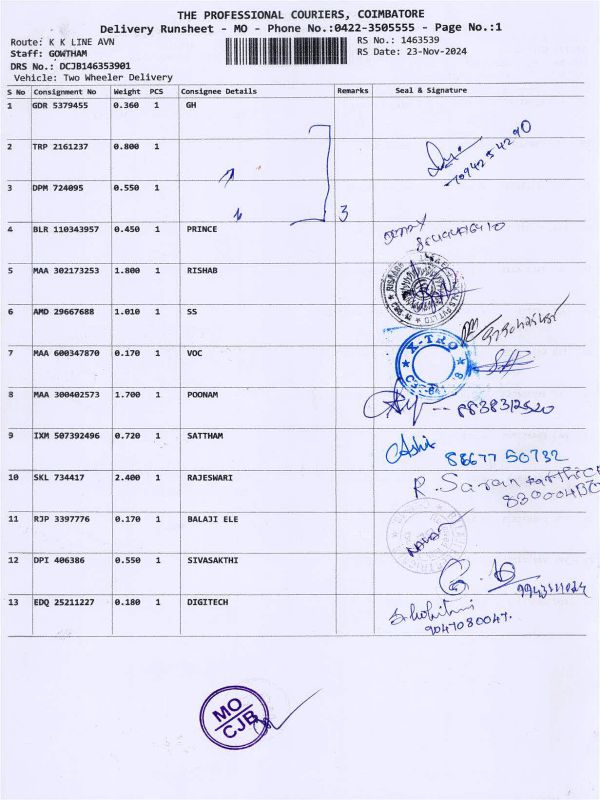 THE PROFESSIONAL COURIERS, COIMBATORE
Delivery Runsheet - MO - Phone No.:0422-3505555 - Page No.:1
Route: K K LINE AVN
RS No.: 1463539
Staff: GOWTHAM
RS Date: 23-Nov-2024
DRS No.: DCJB146353901
Vehicle: Two Wheeler Delivery
S No Consignment No Weight PCS Consignee Details Remarks Seal & Signature
1 GDR 5379455 0.360 1 GH
2 TRP 2161237 0.800 1
3 DPM 724095 0.550 1 3
4 BLR 110343957 0.450 1 PRINCE
5 MAA 302173253 1.800 1 RISHAB
6 AMD 29667688 1.010 1 SS
7 MAA 600347870 0.170 1 VOC X-TRO
8 MAA 300402573 1.700 1 POONAM 8838312520
9 IXM 507392496 0.720 1 SATTHAM 88677 50732
10 SKL 734417 2.400 1 RAJESWARI R. Saran
11 RJP 3397776 0.170 1 BALAJI ELE
12 DPI 406386 0.550 1 SIVASAKTHI
13 EDQ 25211227 0.180 1 DIGITECH
9047080047.
MO
CJB